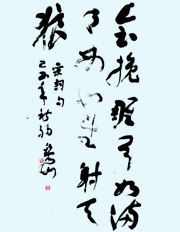 会挽雕弓如满
月西北望射天
狼
宋词句